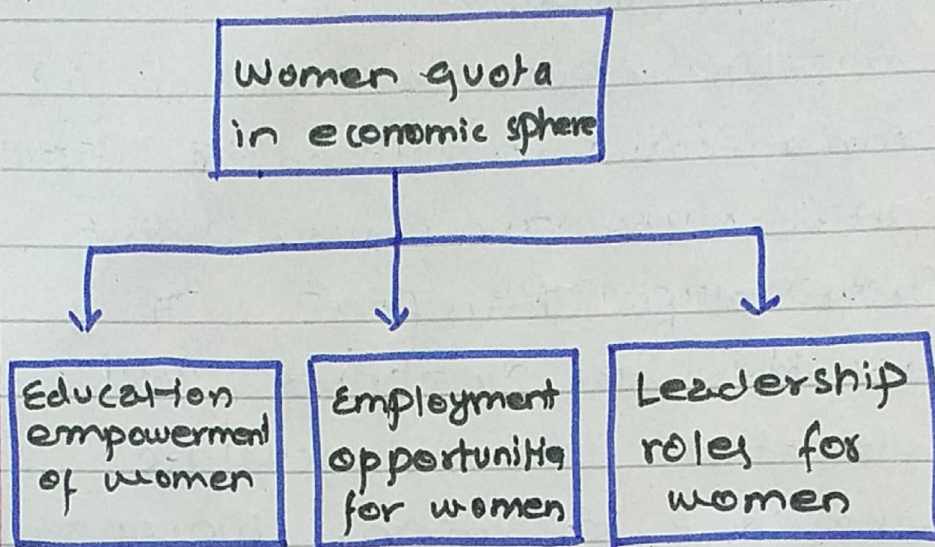 Women quota
in economic sphere
Education
empowerment
of women
Employment
opportunities
for women
Leadership
roles for
women